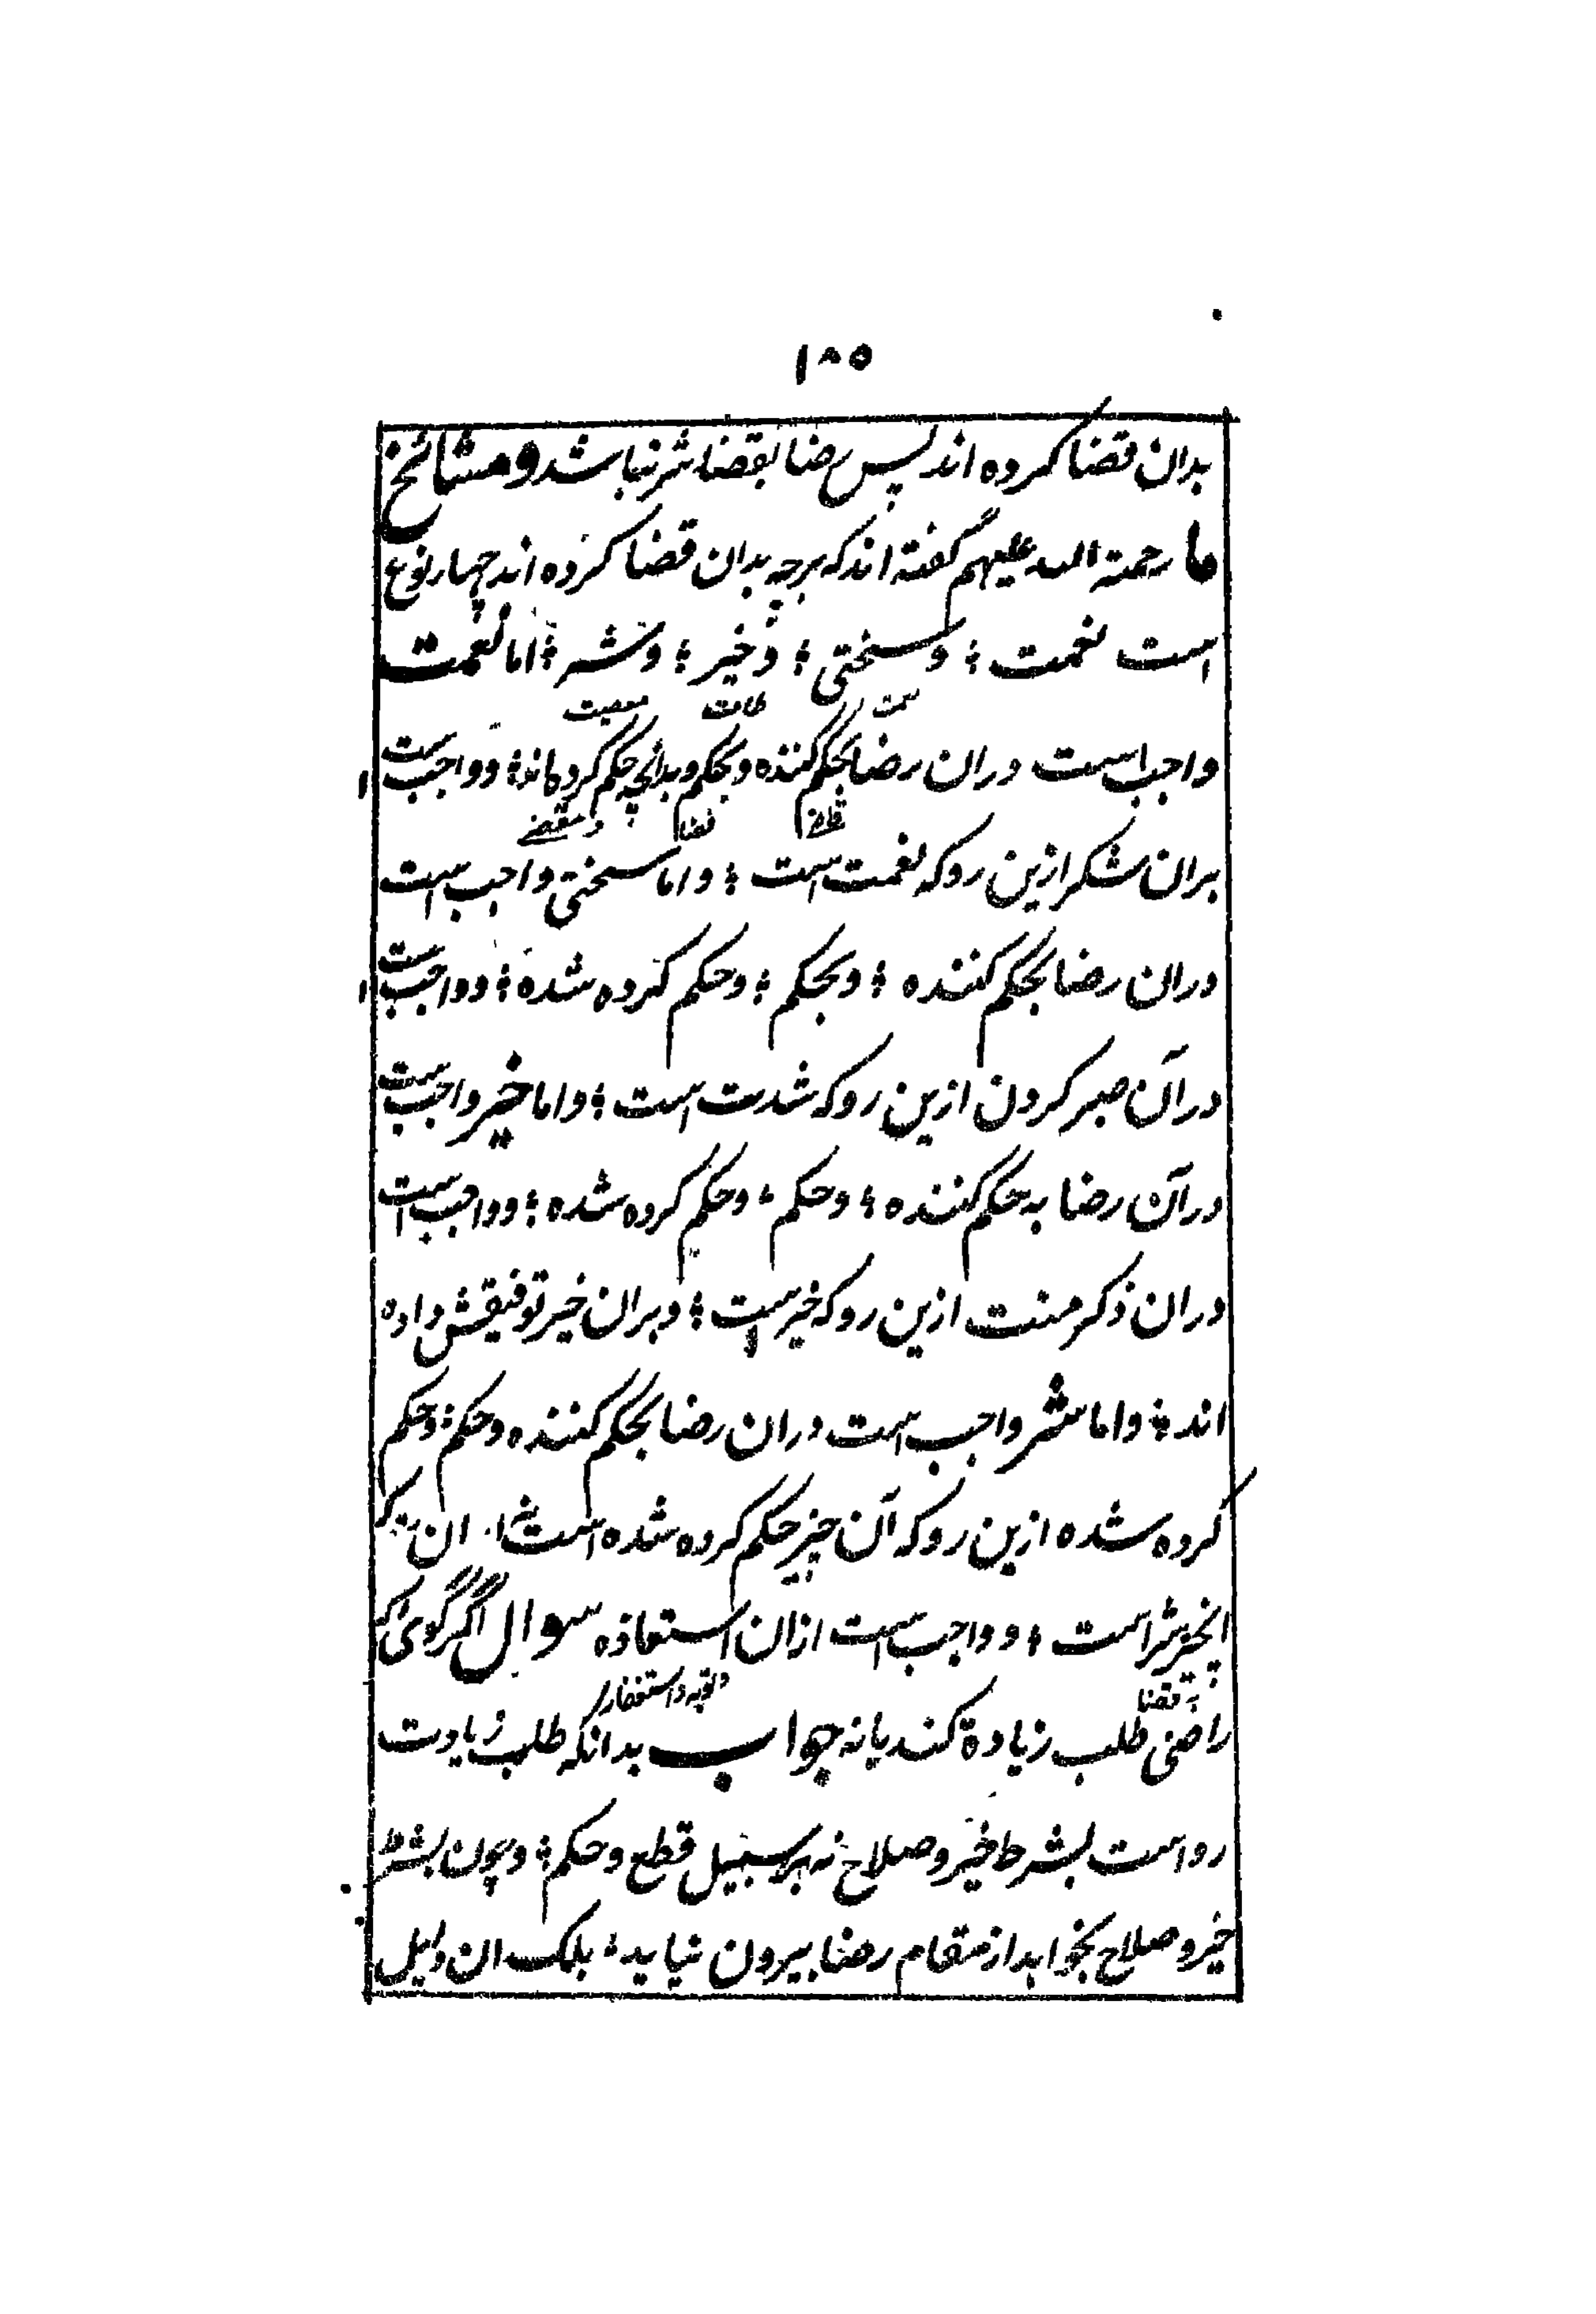 ۱۸۵
بدان قضا کرده اند پس رضا بقضاء شر نباشد و مشائخ
ما رحمة الله علیهم گفته اند که هرچه بدان قضا کرده اند چهار نوع
است نعمت ؛ و سختی ؛ و خیر ؛ و شر ؛ اما نعمت
طاعت معصیت
واجب است دران رضا بحکم کننده و بحکم و بدانچه حکم کرده اند ؛ و واجب است
قاضی قضا و مقضی
بران شکر ازین رو که نعمت است ؛ و اما سختی واجب است
دران رضا بحکم کننده ؛ و بحکم ؛ و حکم کرده شده ؛ و واجب است
در آن صبر کردن ازین رو که شدت است ؛ و اما خیر واجب است
در آن رضا به حکم کننده ؛ و حکم ؛ و حکم کرده شده ؛ و واجب است
دران ذکر منت ازین رو که خیر است ؛ و بران خیر توفیقش داده
اند ؛ و اما شر واجب است دران رضا بحکم کننده و حکم ؛ و حکم
کرده شده ازین رو که آن چیز حکم کرده شده است ان
انچیز شر است ؛ و واجب است ازان استعاذه سوال اگر گوی که
به قضا و توبه و استغفار
راضی طلب زیادة کند یا نه جواب بدانکه طلب زیادت
رواست بشرط خیر و صلاح نه بر سبیل قطع و حکم ؛ و چون بشرط
خیر و صلاح بخواهد از مقام رضا بیرون نیاید ؛ بلک ان دلیل